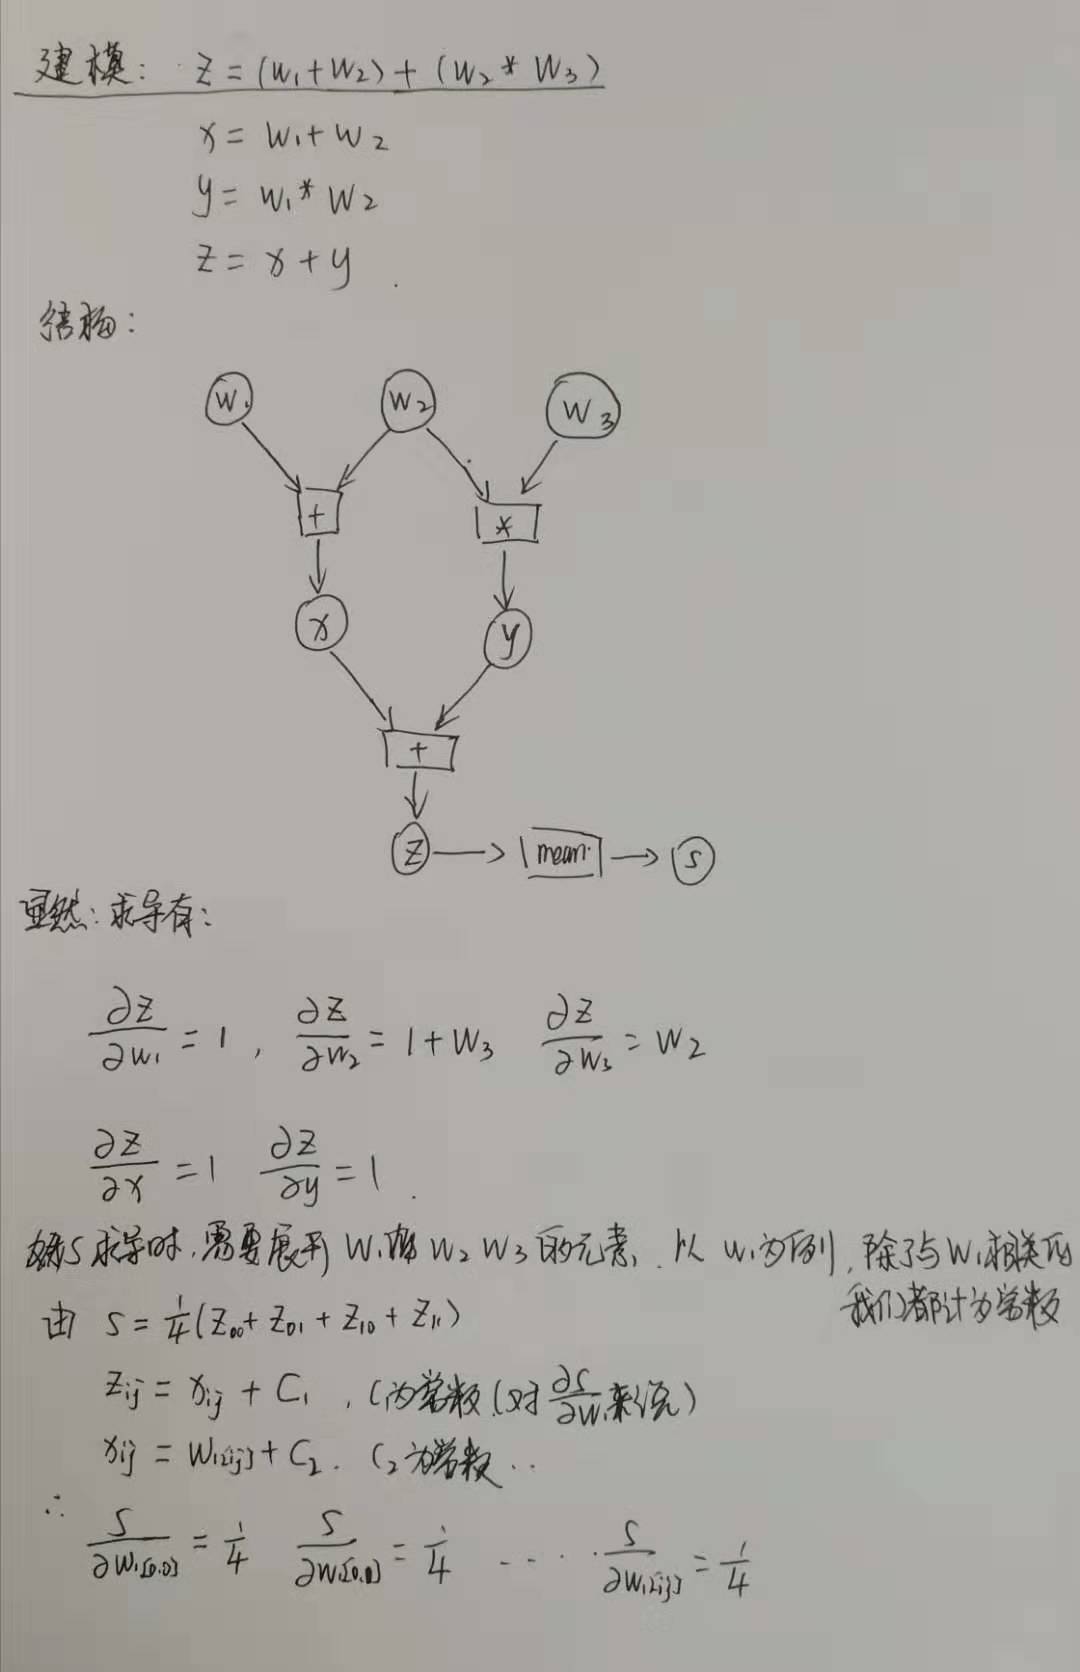 建模: z = (w₁+w₂) + (w₂ * w₃)
x = w₁ + w₂
y = w₁ * w₂
z = x + y
结构:
w₁ w₂ w₃
+ *
x y
+
z mean s
显然: 求导有:
∂z/∂w₁ = 1, ∂z/∂w₂ = 1 + w₃ ∂z/∂w₃ = w₂
∂z/∂x = 1 ∂z/∂y = 1.
S求导时, 需要展开 w₁ w₂ w₃ 的元素. 以 w₁为例, 除了与w₁相关的
我们都计为常数
由 S = 1/4(z₀₀ + z₀₁ + z₁₀ + z₁₁)
zᵢⱼ = xᵢⱼ + C₁, C₁为常数 (对 ∂S/∂w₁ 来说)
xᵢⱼ = w₁[ij] + C₂. C₂为常数..
∴ S/∂w₁[0,0] = 1/4 S/∂w₁[0,1] = 1/4 ..... S/∂w₁[ij] = 1/4